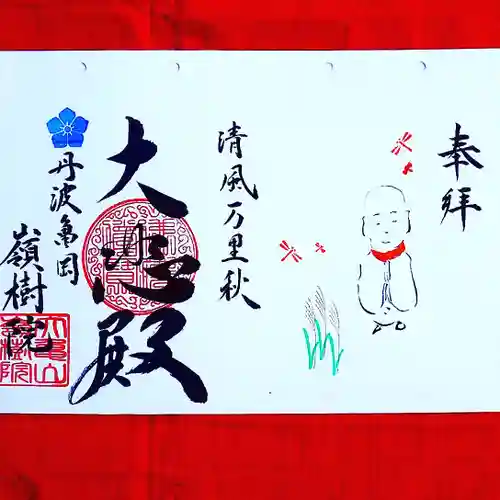 奉拝
清風万里秋
大悲殿
丹波亀岡
嶺樹院